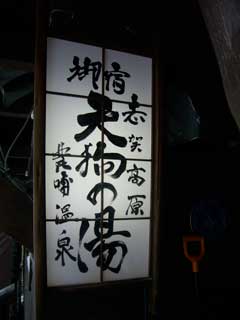 御宿
志賀高原
天狗の湯
発哺温泉